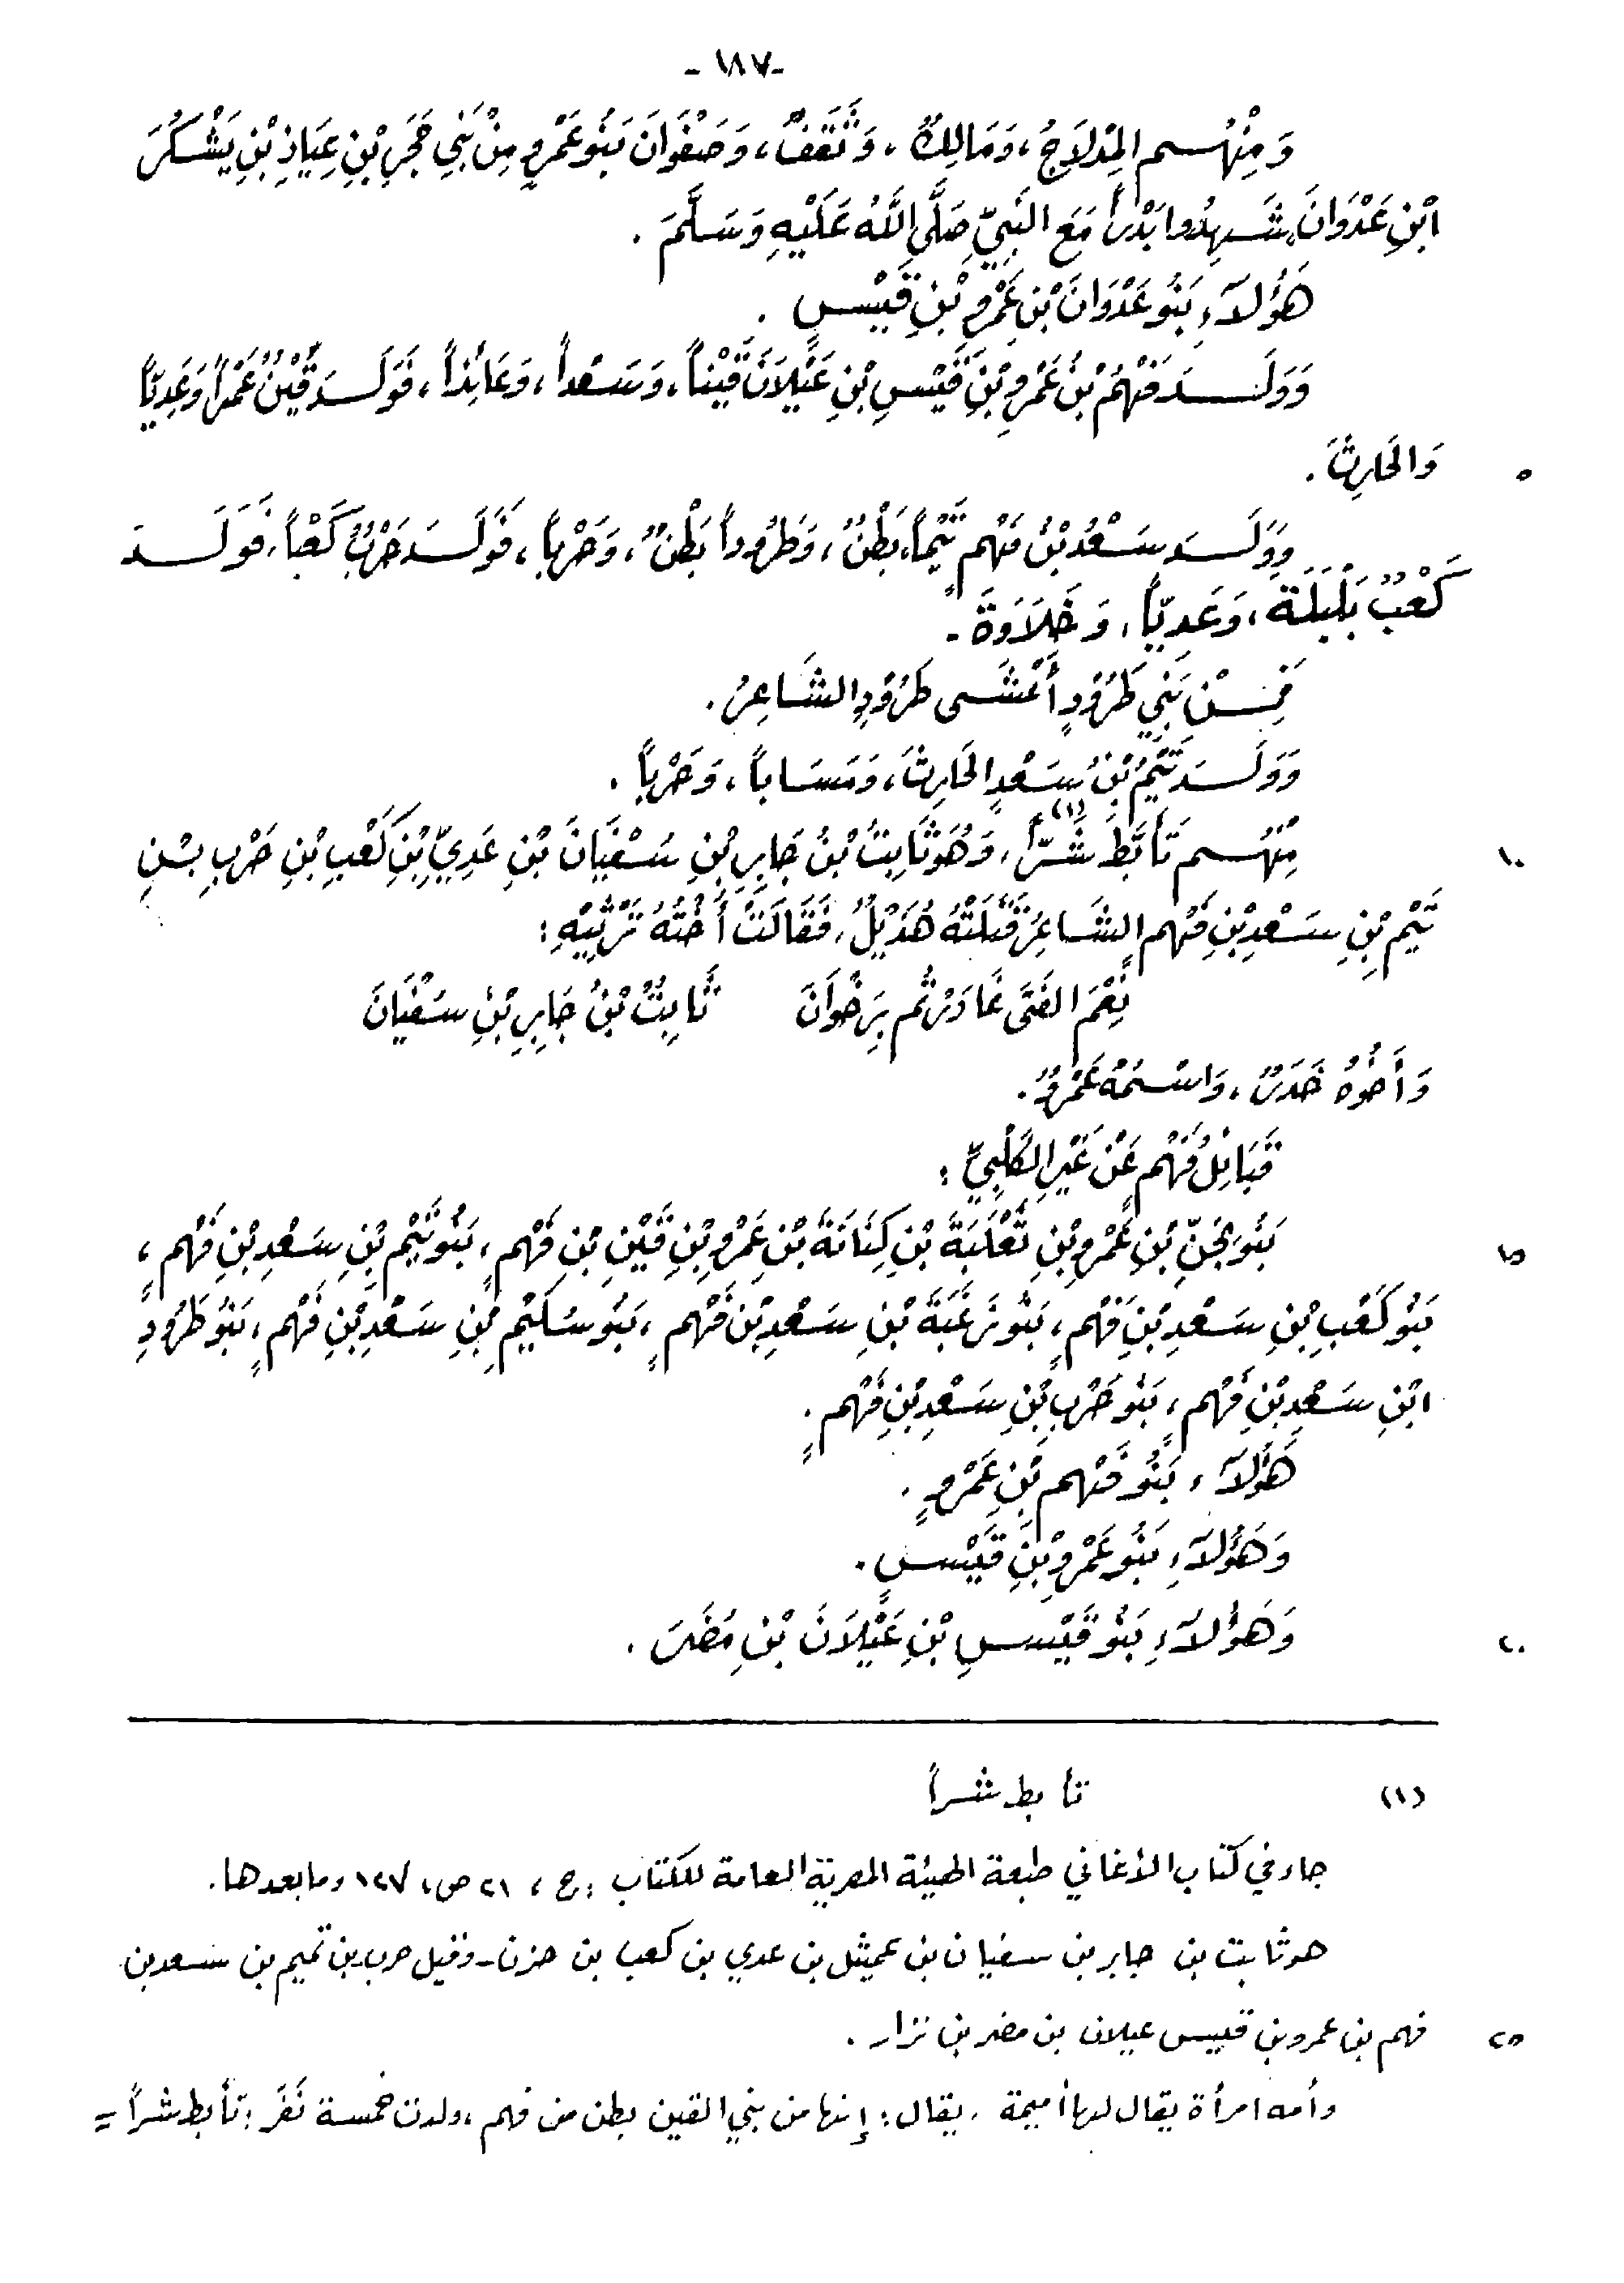 -١٨٧-
وَمِنْهُم المِدْلَاجُ، وَمَالِكٌ، وَثَقَفٌ، وَصَفْوَانَ بَنُو عَمْرٍو مِنْ بَنِي حَجَرِ بْنِ عِيَاذِ بْنِ يَشْكُرَ
ابْنِ عَدْوَانَ، شَهِدُوا بَدْراً مَعَ النَّبِيِّ صَلَّى اللَّهُ عَلَيْهِ وَسَلَّمَ.
هَؤُلَاءِ بَنُو عَدْوَانَ بْنِ عَمْرِو بْنِ قَيْسٍ.
وَوَلَدَ فَهْمُ بْنُ عَمْرِو بْنِ قَيْسِ بْنِ عَيْلَانَ قَيْناً، وَسَعْداً، وَعَائِذاً، فَوَلَدَ قَيْنُ عَمْراً وَعَدِيّاً
٥ وَالحَارِثَ.
وَوَلَدَ سَعْدُ بْنُ فَهْمٍ تَيْماً، بَطْنٌ، وَطَرُوداً بَطْنٌ، وَحَرْباً، فَوَلَدَ حَرْبٌ كَعْباً، فَوَلَدَ
كَعْبٌ بَلْبَلَةَ، وَعَدِيّاً، وَخَلَاوَةَ.
فَمِنْ بَنِي طَرُودٍ أَعْشَى طَرُودٍ الشَّاعِرُ.
وَوَلَدَ تَيْمُ بْنُ سَعْدٍ الحَارِثَ، وَمَسَاباً، وَحَرْباً.
١٠ مِنْهُم تَأَبَّطَ شَرّاً (١)، وَهُوَ ثَابِتُ بْنُ جَابِرِ بْنِ سُفْيَانَ بْنِ عَدِيِّ بْنِ كَعْبِ بْنِ حَرْبِ بْنِ
تَيْمِ بْنِ سَعْدِ بْنِ فَهْمٍ الشَّاعِرُ قَتَلَتْهُ هُذَيْلٌ، فَقَالَتْ أُخْتُهُ تَرْثِيْهِ:
نِعْمَ الفَتَى غَادَرْتُم بِرَخْوَانَ ثَابِتُ بْنُ جَابِرِ بْنِ سُفْيَانَ
وَأَخُوهُ خَدَرٌ، وَاسْمُهُ عَمْرٌو.
قَبَائِلُ فَهْمٍ عَنْ غَيْرِ الكَلْبِيِّ:
١٥ بَنُو بَجَنِّ بْنِ عَمْرِو بْنِ ثَعْلَبَةَ بْنِ كِنَانَةَ بْنِ عَمْرِو بْنِ قَيْنِ بْنِ فَهْمٍ، بَنُو تَيْمِ بْنِ سَعْدِ بْنِ فَهْمٍ،
بَنُو كَعْبِ بْنِ سَعْدِ بْنِ فَهْمٍ، بَنُو زَغَبَةَ بْنِ سَعْدِ بْنِ فَهْمٍ، بَنُو سُلَيْمِ بْنِ سَعْدِ بْنِ فَهْمٍ، بَنُو طَرُودِ
ابْنِ سَعْدِ بْنِ فَهْمٍ، بَنُو حَرْبِ بْنِ سَعْدِ بْنِ فَهْمٍ.
هَؤُلَاءِ بَنُو فَهْمِ بْنِ عَمْرٍو.
وَهَؤُلَاءِ بَنُو عَمْرِو بْنِ قَيْسٍ.
٢٠ وَهَؤُلَاءِ بَنُو قَيْسِ بْنِ عَيْلَانَ بْنِ مُضَرَ.
(١) تأبط شراً
جاء في كتاب الأغاني طبعة الهيئة المصرية العامة للكتاب: ج، ٢١ ص، ١٢٧ وما بعدها.
هو ثابت بن جابر بن سفيان بن عميثل بن عدي بن كعب بن حزن - وقيل حرب بن تميم بن سعد بن
٢٥ فهم بن عمرو بن قيس عيلان بن مضر بن نزار.
وأمه امرأة يقال لها أميمة، يقال: إنها من بني القين بطن من فهم، ولدت خمسة نَفَر: تأبط شراً =